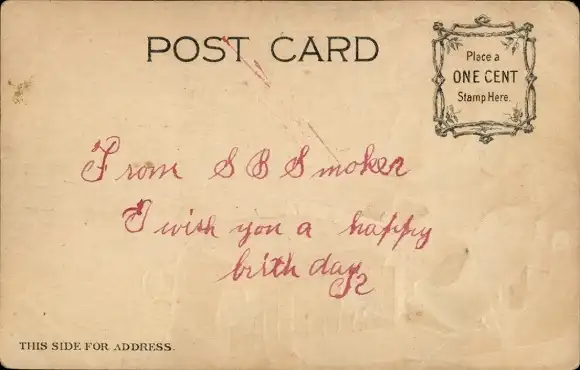 POST CARD
Place a
ONE CENT
Stamp Here.
From S B Smoker
I wish you a happy
birth day
THIS SIDE FOR ADDRESS.